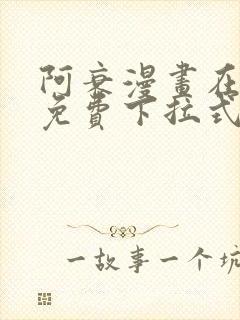 阿衰漫畫在
免費下拉式
一故事一个坑